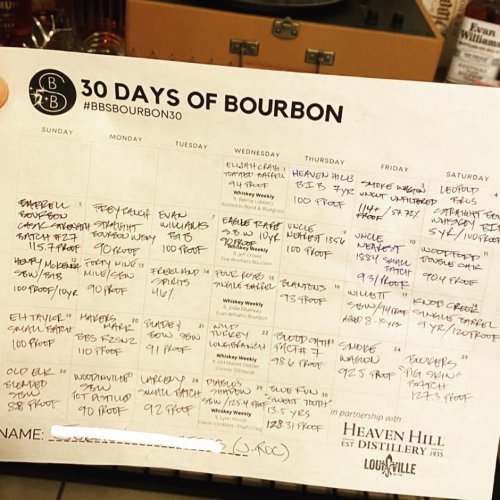 Evan
Williams
B
S B
B
30 DAYS OF BOURBON
#BBSBOURBON30
SUNDAY MONDAY TUESDAY WEDNESDAY THURSDAY FRIDAY SATURDAY
ELIJAH CRAIG 1
TOASTED BARREL
94 PROOF
Whiskey Weekly
HEAVEN HILL 2
BIB 7YR
100 PROOF
SMOKE WAGON 3
UNCUT UNFILTERED
114+ / 57.
PROOF
LEOPOLD 4
BROS
STRAIGHT BOURBON
WHISKEY BIB
5YR/100 PROOF
BARRELL 5
BOURBON
CASK STRENGTH
BATCH #27
115.7 PROOF
FREY RANCH 6
STRAIGHT
BOURBON WHISKEY
90 PROOF
EVAN 7
WILLIAMS
BIB
100 PROOF
EAGLE RARE 8
SBW 10YR
90 PROOF
Whiskey Weekly
UNCLE 9
NEAREST 1856
100 PROOF
UNCLE 10
NEAREST
1884 SMALL
BATCH
93/PROOF
WOODFORD
DOUBLE OAK
90.4 PROOF
HENRY McKENNA 12
SBW/BIB
100 PROOF/10YR
FORTY NINE 13
MILE/SBW
90 PROOF
FREELAND 14
SPIRITS
FOUR ROSES 15
SINGLE BARREL
Whiskey Weekly
Evan Williams Bourbon
BLANTONS 16
93 PROOF
WILLETT 17
SBW/94 PROOF
AGED 8-10YRS
KNOB CREEK 18
SINGLE BARREL
9YR/120 PROOF
EH TAYLOR 19
SMALL BATCH
100 PROOF
MAKERS 20
MARK
110 PROOF
BLADE & 21
BOW SBW
91 PROOF
WILD 22
TURKEY
LONGBRANCH
Whiskey Weekly
BLOOD OATH 23
PACT #7
98.6 PROOF
SMOKE 24
WAGON
92.5 PROOF
BOOKERS 25
"PIG SKIN"
BATCH
127.3 PROOF
OLD ELK 26
BLENDED
SBW
88 PROOF
WOODINVILLE 27
SBW
POT DISTILLED
90 PROOF
LARCENY 28
SMALL BATCH
92 PROOF
DIABLOS 29
SHADOW
SBW/125.4 PROOF
Whiskey Weekly
BLUE RUN 30
SWEET TOOTH
13.5 YRS
128.31 PROOF
in partnership with:
HEAVEN HILL
EST DISTILLERY 1935
LOUISVILLE
NAME: (J-ROC)